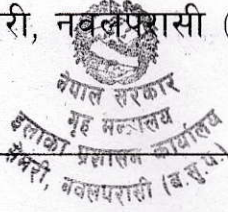 री, नवलपरासी (
नेपाल सरकार
गृह मन्त्रालय
इलाका प्रशासन कार्यालय
सेमरी, नवलपरासी (ब.सु.प.)